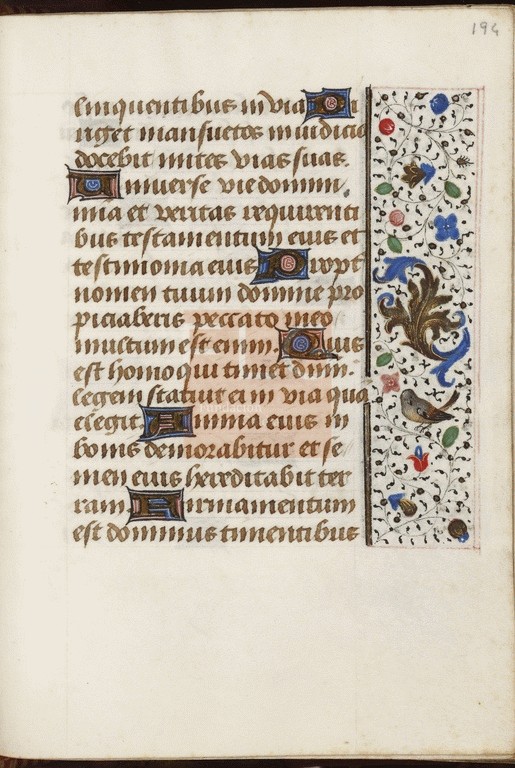 194
linquentibus in via Di
riget mansuetos in iudicio
docebit mites vias suas.
Universe vie domini.
mia et veritas requirenti
bus testamentum eius et
testimonia eius Propt
nomen tuum domine pro
piciaberis peccato meo
multum est enim. Quis
est homo qui timet dnm.
legem statuit ei in via qua
elegit. Anima eius in
bonis demorabitur et se
men eius hereditabit ter
ram. Firmamentum
est dominus timentibus
Fundación